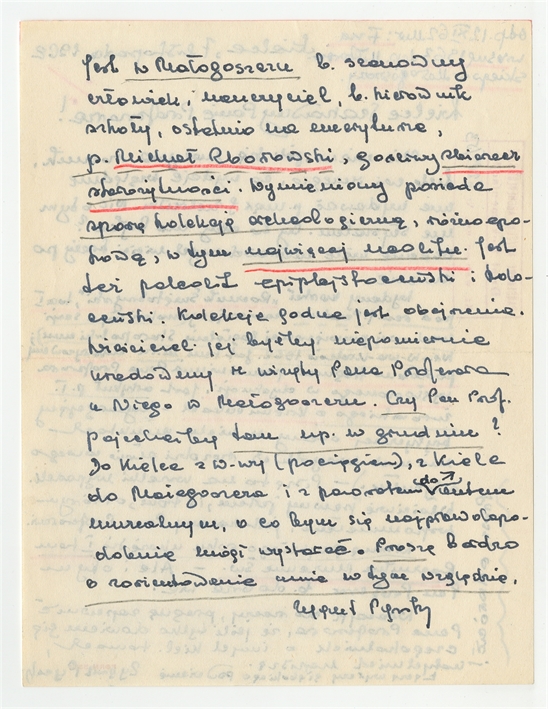 Jest w Małogoszczu b. szanowny
człowiek, nauczyciel, b. kierownik
szkoły, ostatnio na emeryturze,
p. Michał Rborowski, gorliwy zbieracz
starożytności. Wymieniony posiada
sporą kolekcję archeologiczną, różnoepo-
kową, w tym najwięcej neolitu. Jest
też paleolit epiplejstoceński i holo-
ceński. Kolekcja godna jest obejrzenia.
Właściciel jej byłby niezmiernie
uradowany z wizyty Pana Profesora
u Niego w Małogoszczu. Czy Pan Prof.
pojechałby tam np. w grudniu?
Do Kielc z W-wy (pociągiem), z Kielc
do Małogoszcza i z powrotem do
umralnym, o co bym się najprawdopo-
dobniej mógł wystarać. Proszę bardzo
o zorientowanie mnie w tym względzie.